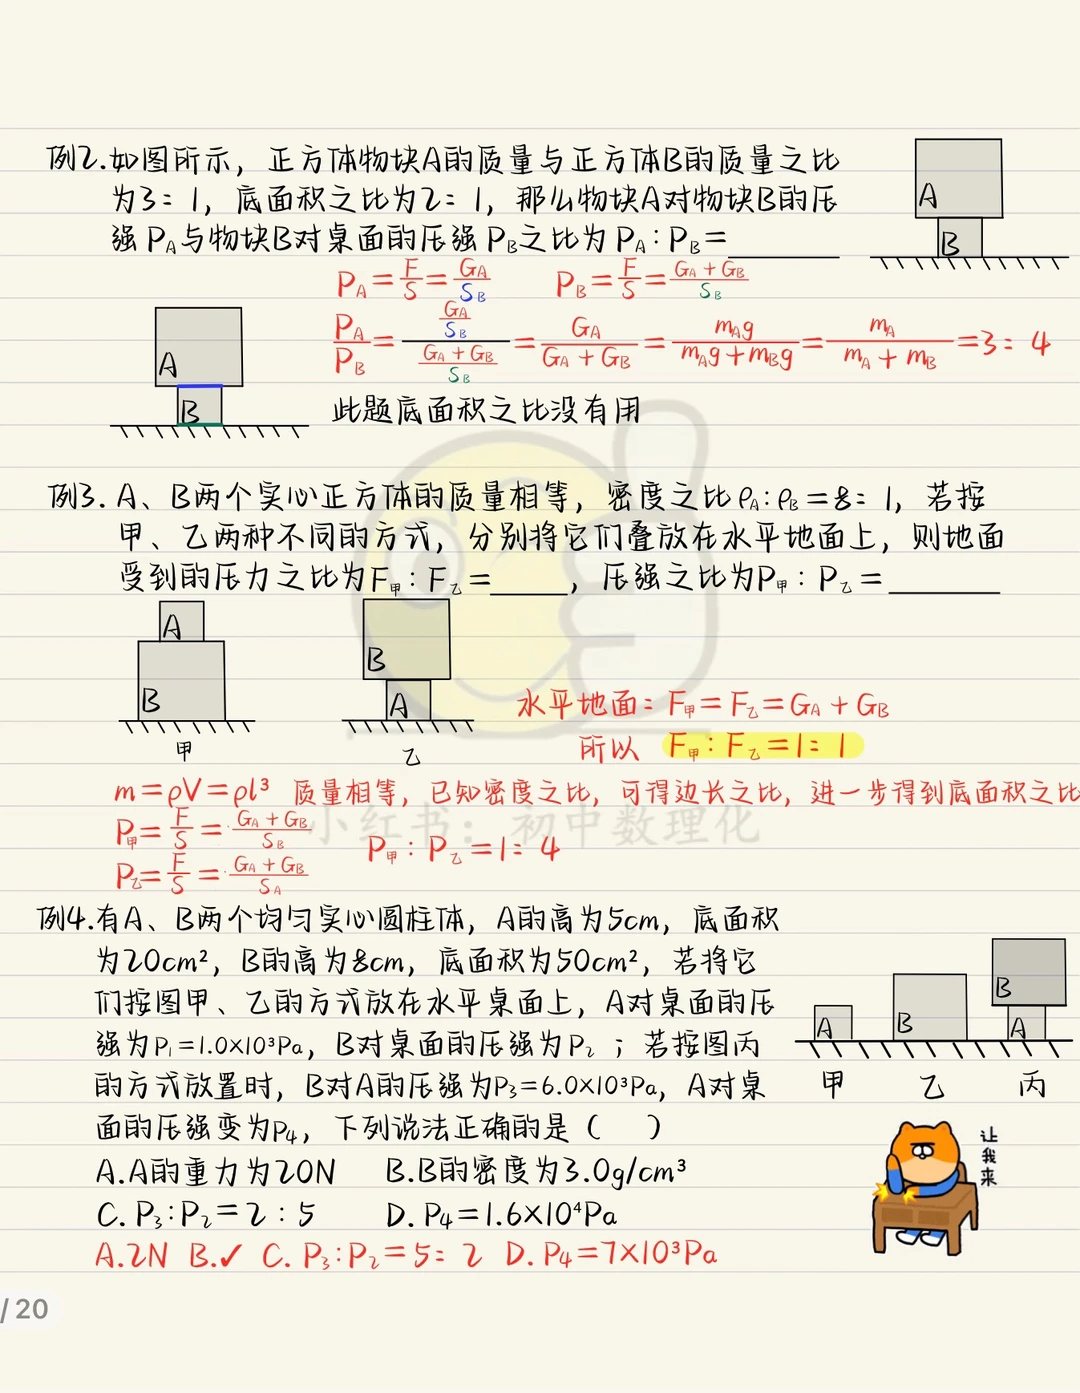 例2.如图所示，正方体物块A的质量与正方体B的质量之比
为3：1，底面积之比为2：1，那么物块A对物块B的压
强PA与物块B对桌面的压强PB之比为PA：PB=______
A
B
PA=F/S=GA/SB PB=F/S=(GA+GB)/SB
PA/PB=(GA/SB)/((GA+GB)/SB)=GA/(GA+GB)=mAg/(mAg+mBg)=mA/(mA+mB)=3：4
A
B
此题底面积之比没有用
例3.A、B两个实心正方体的质量相等，密度之比ρA:ρB=8：1，若按
甲、乙两种不同的方式，分别将它们叠放在水平地面上，则地面
受到的压力之比为F甲：F乙=____，压强之比为P甲：P乙=______
A
B
甲
B
A
乙
水平地面：F甲=F乙=GA+GB
所以 F甲：F乙=1：1
m=ρV=ρl³ 质量相等，已知密度之比，可得边长之比，进一步得到底面积之比
P甲=F/S=(GA+GB)/SB
P甲：P乙=1：4
P乙=F/S=(GA+GB)/SA
小红书：初中数理化
例4.有A、B两个均匀实心圆柱体，A的高为5cm，底面积
为20cm²，B的高为8cm，底面积为50cm²，若将它
们按图甲、乙的方式放在水平桌面上，A对桌面的压
强为P₁=1.0×10³Pa，B对桌面的压强为P₂；若按图丙
的方式放置时，B对A的压强为P₃=6.0×10³Pa，A对桌
面的压强变为P₄，下列说法正确的是（ ）
A
甲
B
乙
B
A
丙
A.A的重力为20N B.B的密度为3.0g/cm³
C.P₃:P₂=2：5 D.P₄=1.6×10⁴Pa
A.2N B.✓ C.P₃:P₂=5：2 D.P₄=7×10³Pa
让我来
/20